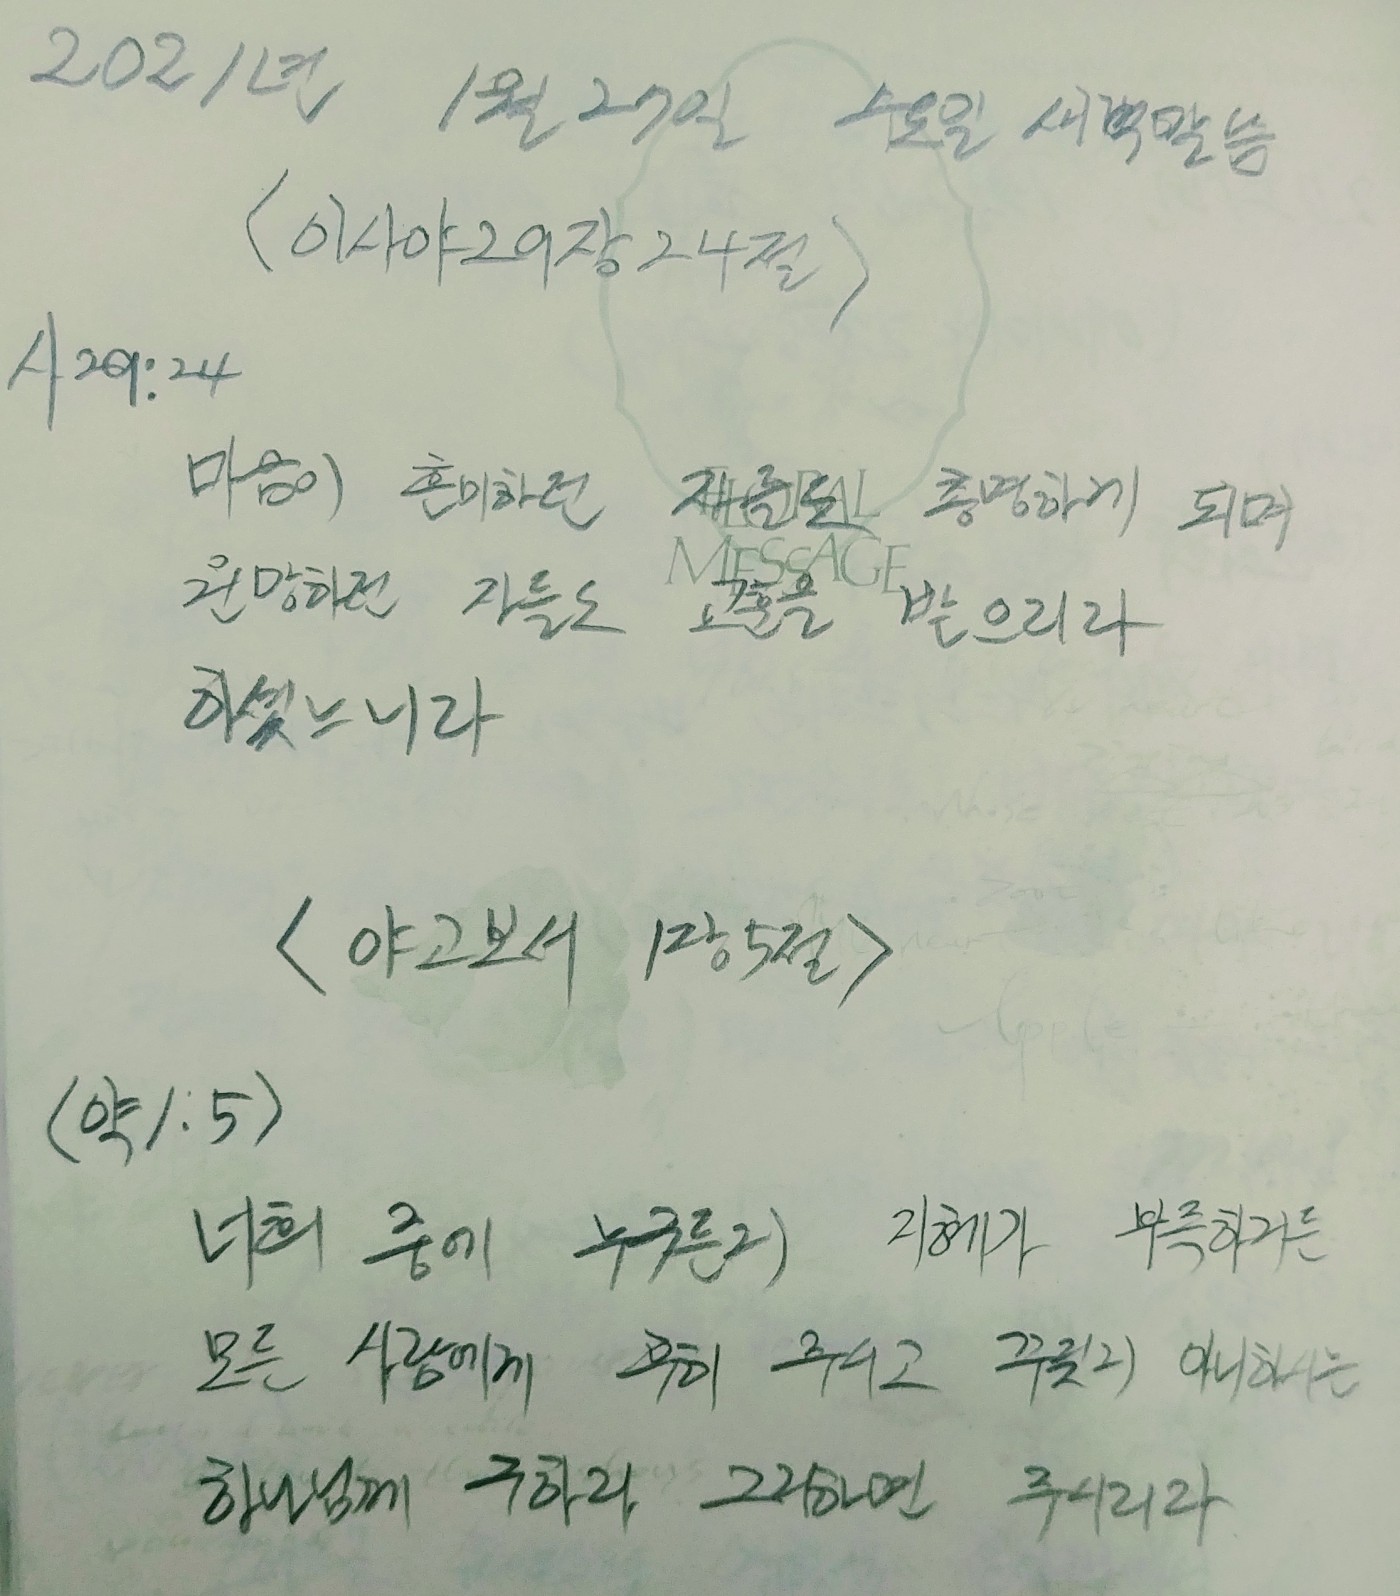 2021년 1월 27일 수요일 새벽말씀
<이사야 29장 24절>
사29:24
마음이 혼미하던 자들도 총명하게 되며
FLORAL
MESSAGE
원망하던 자들도 교훈을 받으리라
하셨느니라
<야고보서 1장 5절>
<약1:5>
너희 중에 누구든지 지혜가 부족하거든
모든 사람에게 후히 주시고 꾸짖지 아니하시는
하나님께 구하라 그리하면 주시리라